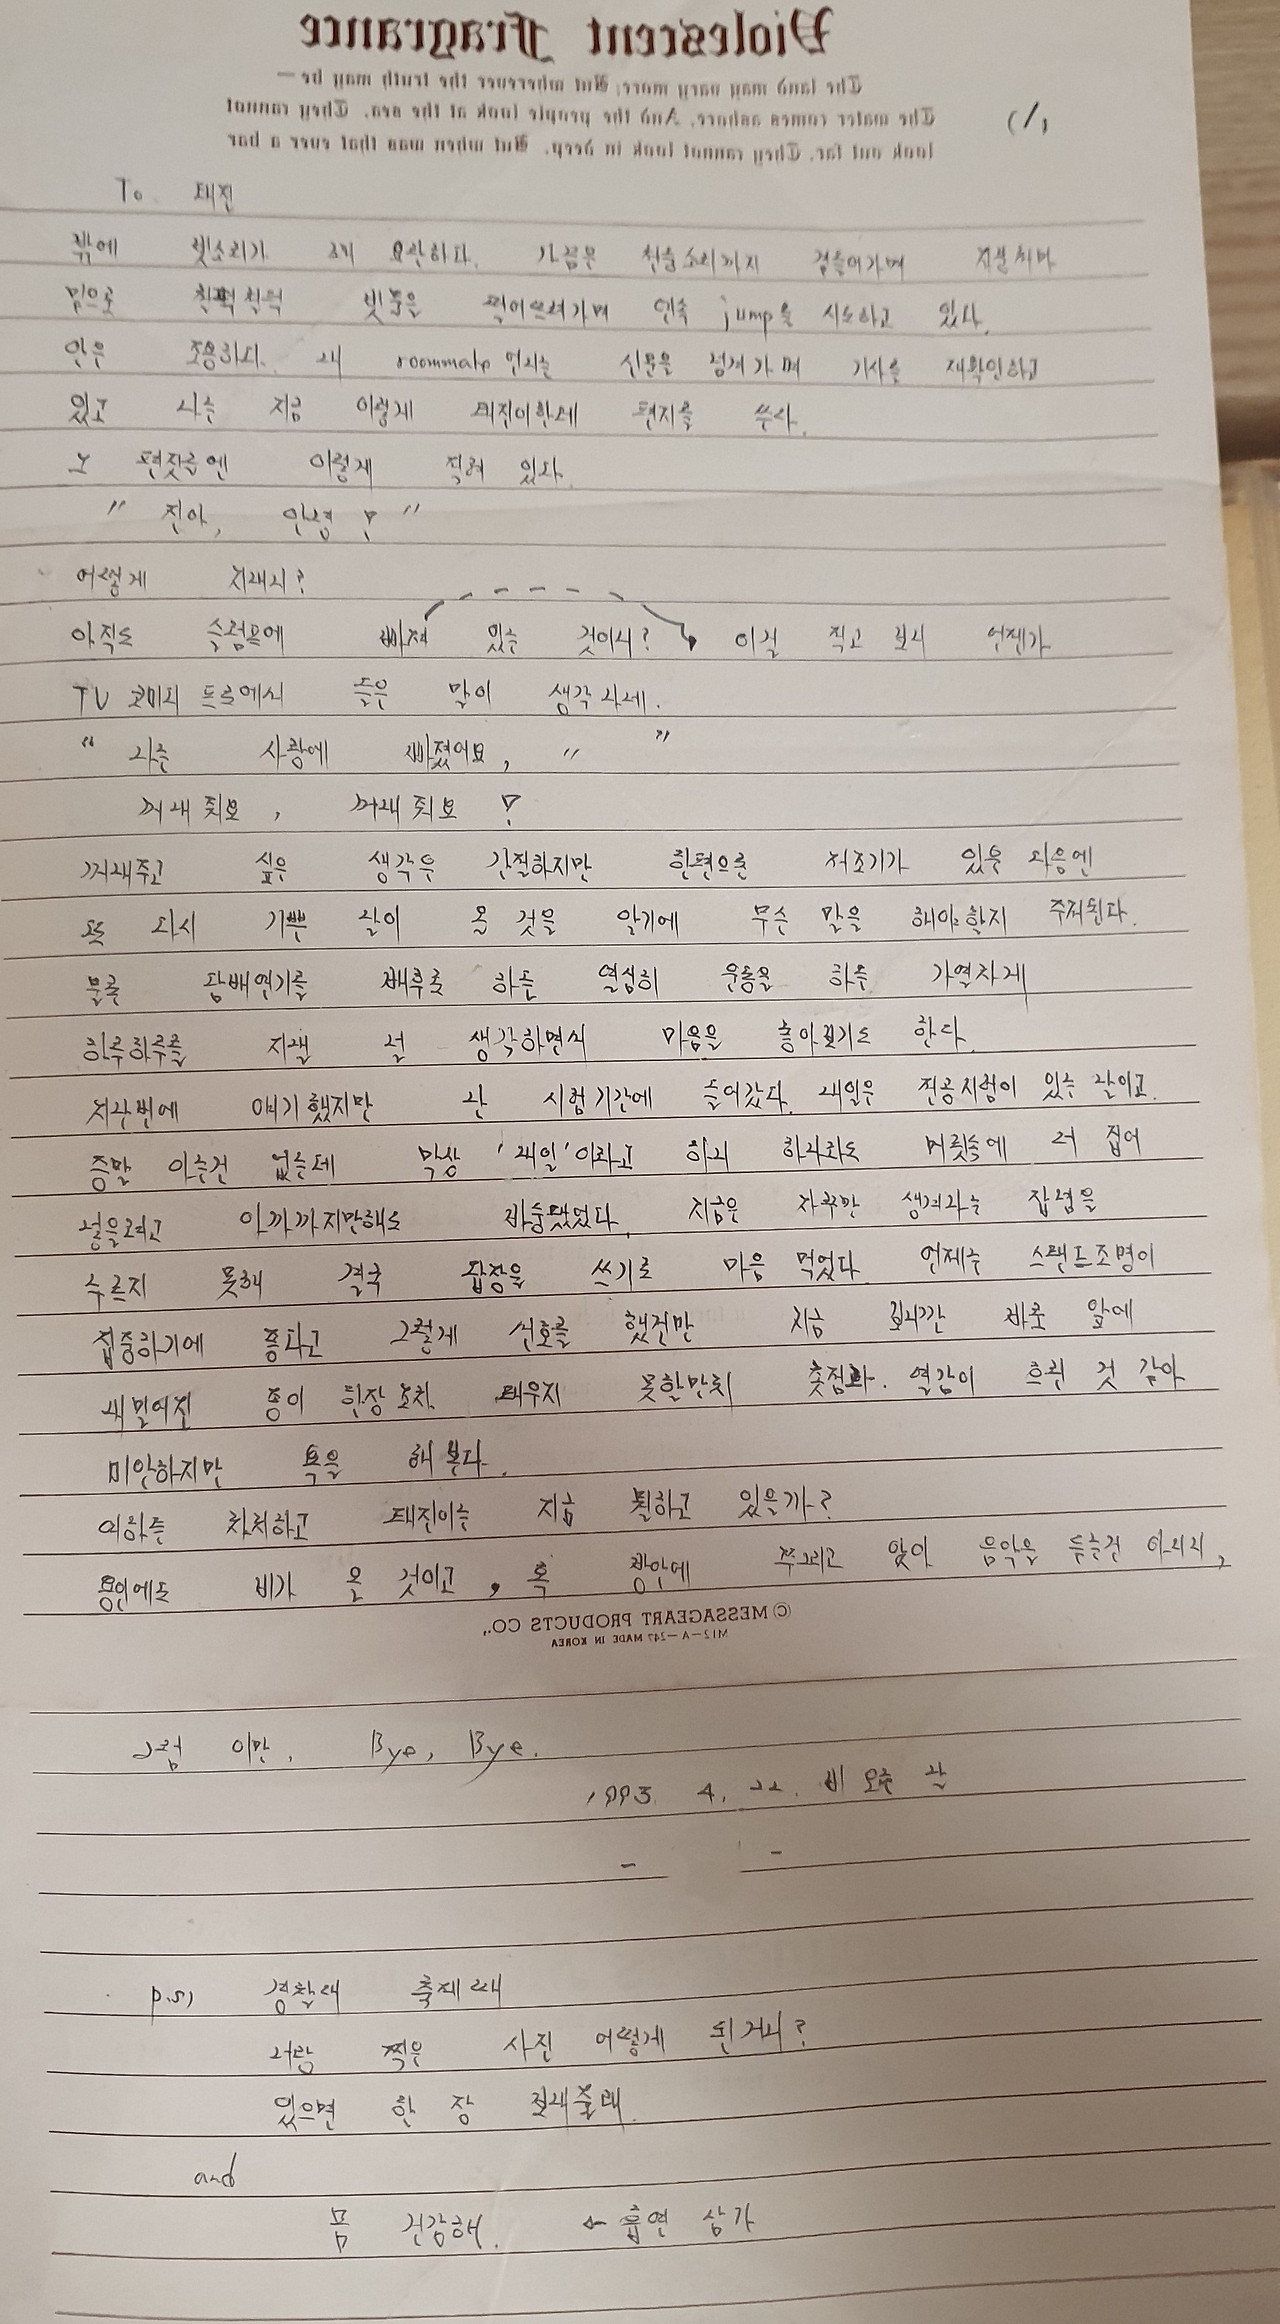 Violescent Fragrance
The land may vary more; But wherever the truth may be—
The water comes ashore, And the people look at the sea. They cannot
look out far. They cannot look in deep. But when was that ever a bar
(1)
To. 태진
밖에 빗소리가 꽤 요란하다. 가끔은 천둥소리까지 곁들여가며 지붕처마
밑으로 친퍽친퍽 빗줄은 떨어뜨려가며 연속 jump를 시도하고 있다.
안은 조용하다. 내 roommate 언니는 신문을 넘겨가며 기사를 재확인하고
있고 나는 지금 이렇게 태진이한테 편지를 쓴다.
그 편짓글엔 이렇게 적혀 있다.
" 진아, 안녕! "
어떻게 지내니?
아직도 슬럼프에 빠져 있는 것이니? 이걸 적고 보니 언젠가
TV 코미디 프로에서 들은 말이 생각나네.
" 나는 사랑에 빠졌어요, " "
꺼내 줘요, 꺼내 줘요!
꺼내주고 싶은 생각은 간절하지만 한편으론 저조기가 있은 다음엔
또 다시 기쁜 날이 올 것을 알기에 무슨 말을 해야할지 주저된다.
물론 담배연기를 배후로 하든 열심히 운동을 하든 가열차게
하루하루를 지낼 널 생각하면서 마음을 놓아보기도 한다.
저번번에 얘기했지만 난 시험기간에 들어갔다. 내일은 전공시험이 있는 날이고.
증말 아는건 없는데 막상 '내일'이라고 하니 하나라도 머릿속에 더 집어
넣을려고 아까까지만해도 바둥댔었다. 지금은 자꾸만 생겨나는 잡념을
누르지 못해 결국 답장을 쓰기로 마음 먹었다. 언제는 스탠드조명이
집중하기에 좋다고 그렇게 선호를 했건만 지금 보니깐 바로 앞에
내밀어진 종이 한장 조차 태우지 못한만치 촛점과 열감이 흐린 것 같아
미안하지만 욕을 해 본다.
여하튼 차치하고 태진이는 지금 뭘하고 있을까?
용인에도 비가 올 것이고, 혹 방안에 쭈그리고 앉아 음악을 듣는건 아니니,
© MESSAGEART PRODUCTS CO.,
M12-A-247 MADE IN KOREA
그럼 이만. Bye, Bye.
1993. 4. 22. 비 오는 날
p.s) 경찰대 축제때
너랑 찍은 사진 어떻게 된거니?
있으면 한 장 보내줄래.
and
몸 건강해. ← 흡연 삼가